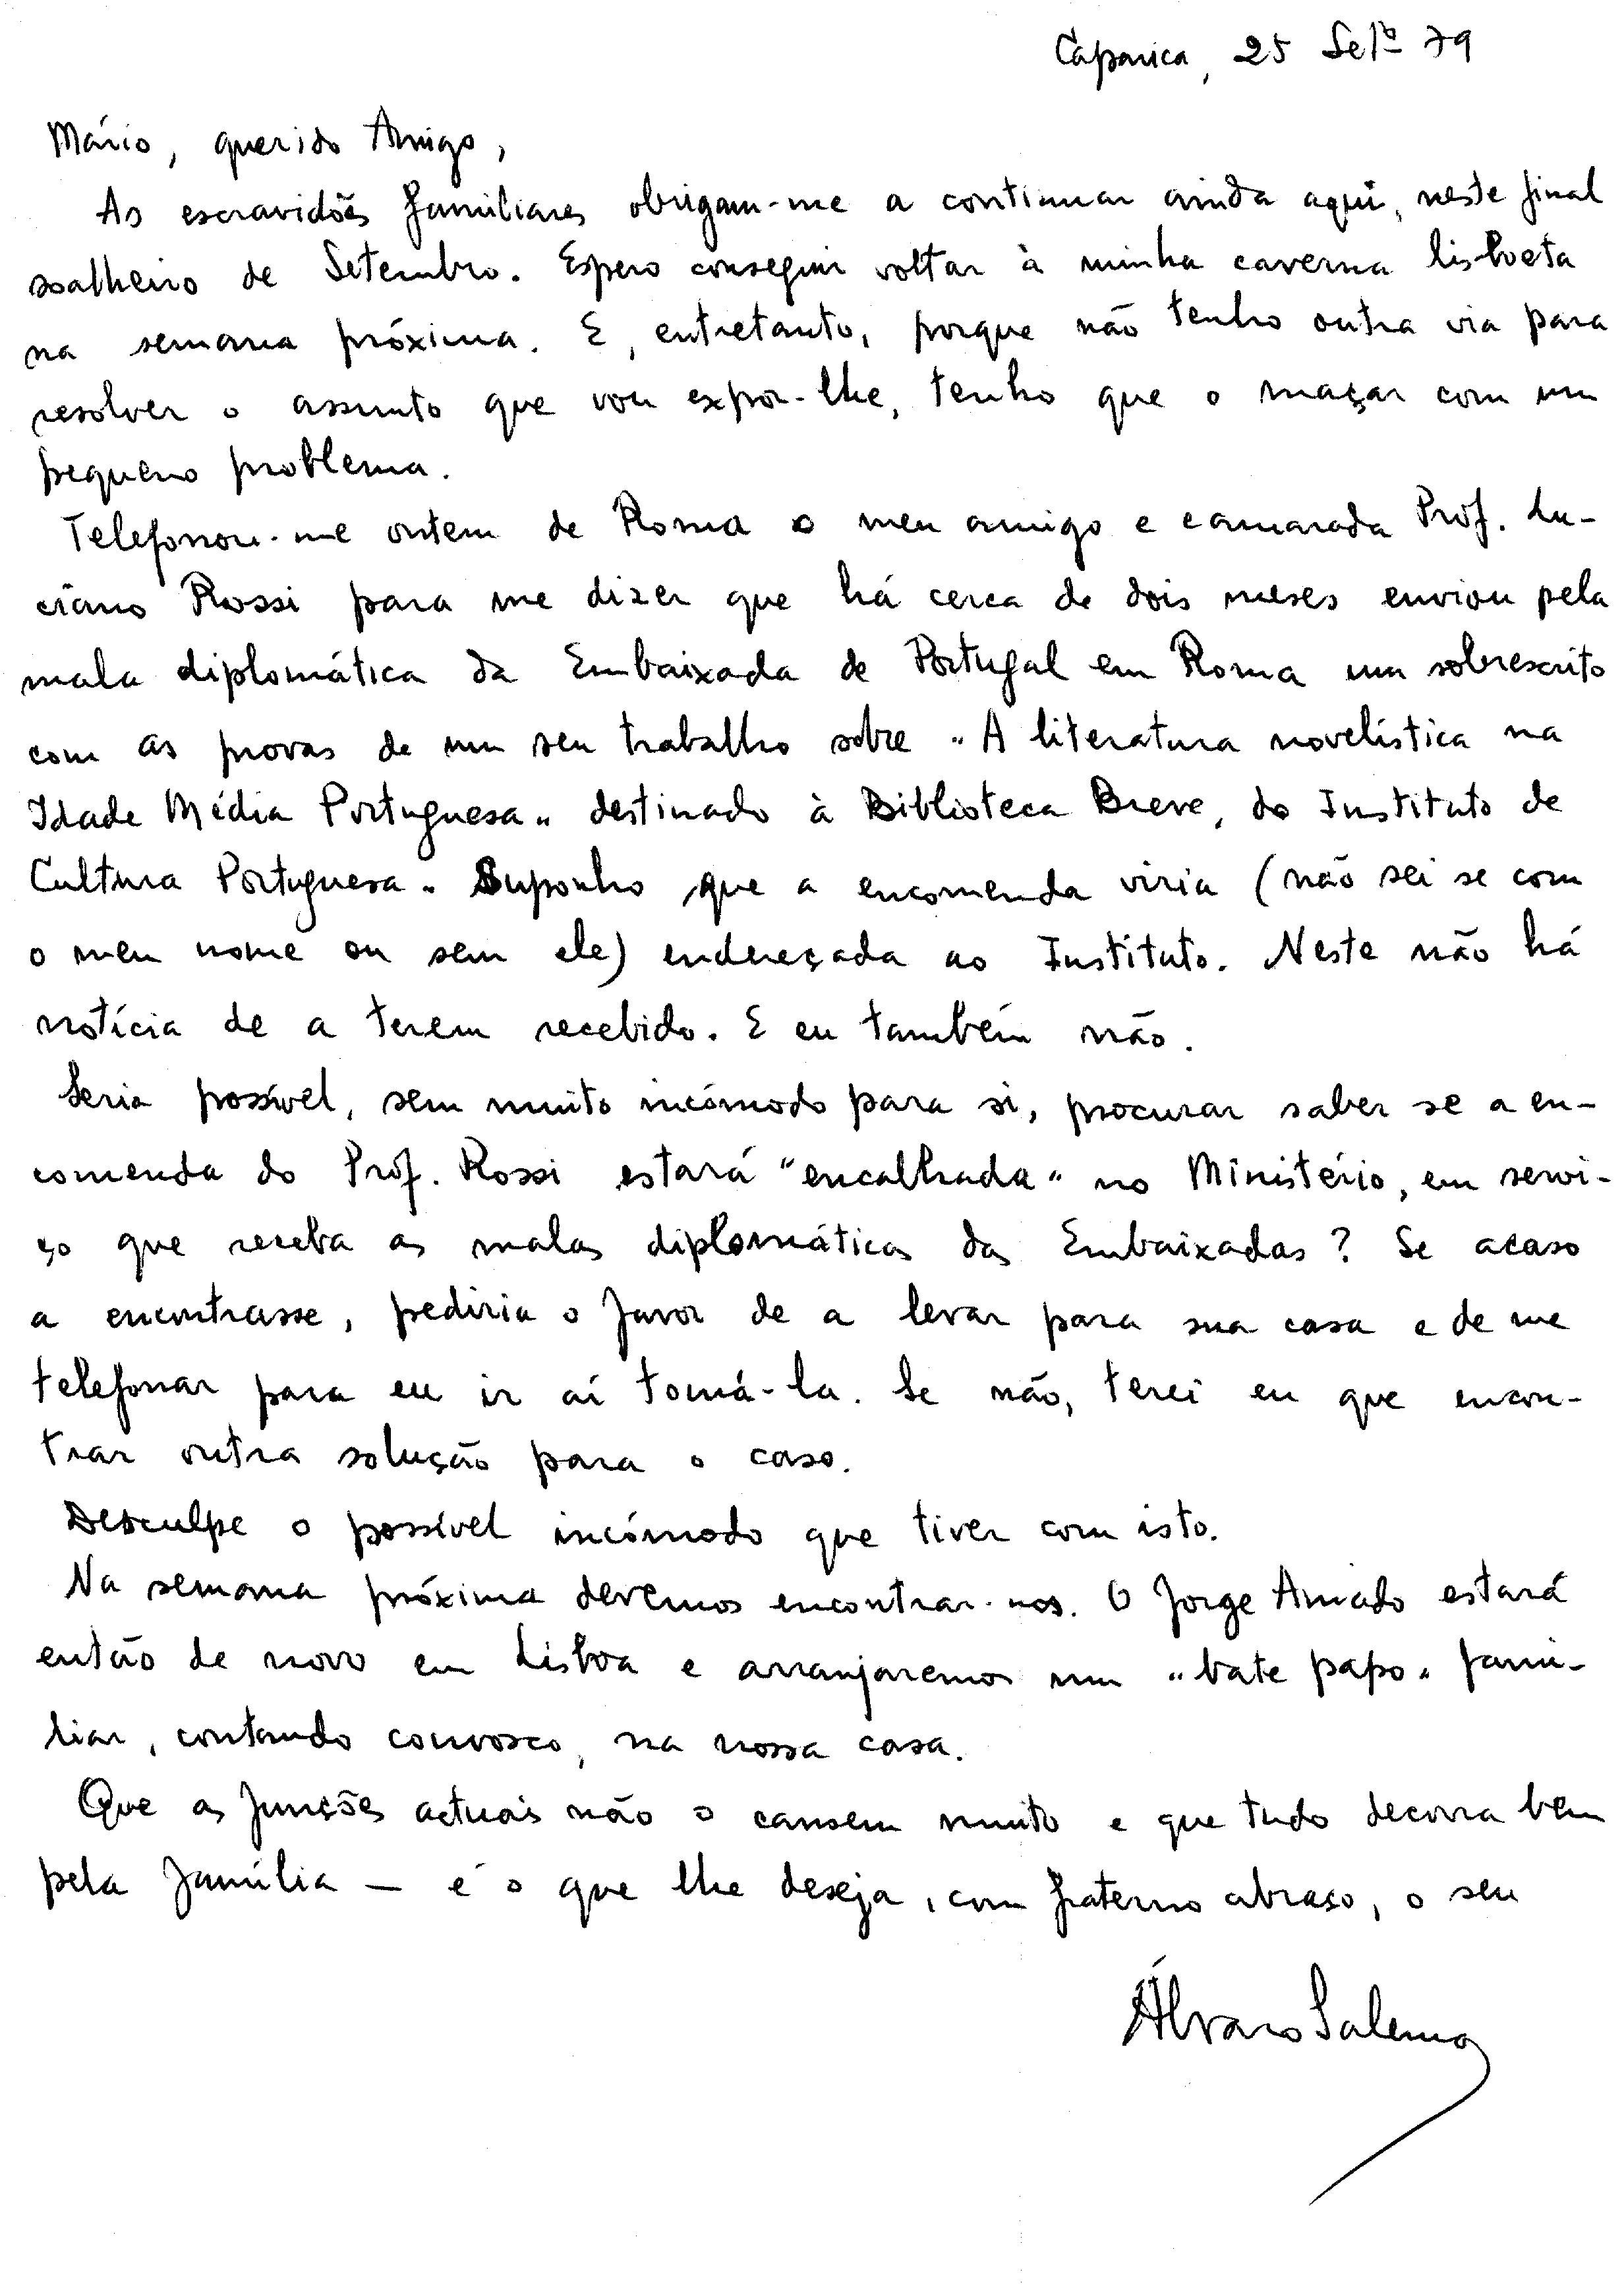 Caparica, 25 Setº 79
Mário, querido Amigo,
As escravidões familiares obrigam-me a continuar ainda aqui, neste final
soalheiro de Setembro. Espero conseguir voltar à minha caverna lisboeta
na semana próxima. E, entretanto, porque não tenho outra via para
resolver o assunto que vou expor-lhe, tenho que o maçar com um
pequeno problema.
Telefonou-me ontem de Roma o meu amigo e camarada Prof. Lu-
ciano Rossi para me dizer que há cerca de dois meses enviou pela
mala diplomática da Embaixada de Portugal em Roma um sobrescrito
com as provas de um seu trabalho sobre "A literatura novelística na
Idade Média Portuguesa" destinado à Biblioteca Breve, do Instituto de
Cultura Portuguesa. Suponho que a encomenda viria (não sei se com
o meu nome ou sem ele) endereçada ao Instituto. Neste não há
notícia de a terem recebido. E eu também não.
Seria possível, sem muito incómodo para si, procurar saber se a en-
comenda do Prof. Rossi estará "encalhada" no Ministério, em servi-
ço que receba as malas diplomáticas das Embaixadas? Se acaso
a encontrasse, pediria o favor de a levar para sua casa e de me
telefonar para eu ir aí tomá-la. Se não, terei eu que encon-
trar outra solução para o caso.
Desculpe o possível incómodo que tiver com isto.
Na semana próxima devemos encontrar-nos. O Jorge Amado estará
então de novo em Lisboa e arranjaremos um "bate papo" fami-
liar, contando convosco, na nossa casa.
Que as funções actuais não o cansem muito e que tudo decorra bem
pela família — é o que lhe deseja, com fraterno abraço, o seu
Álvaro Salema